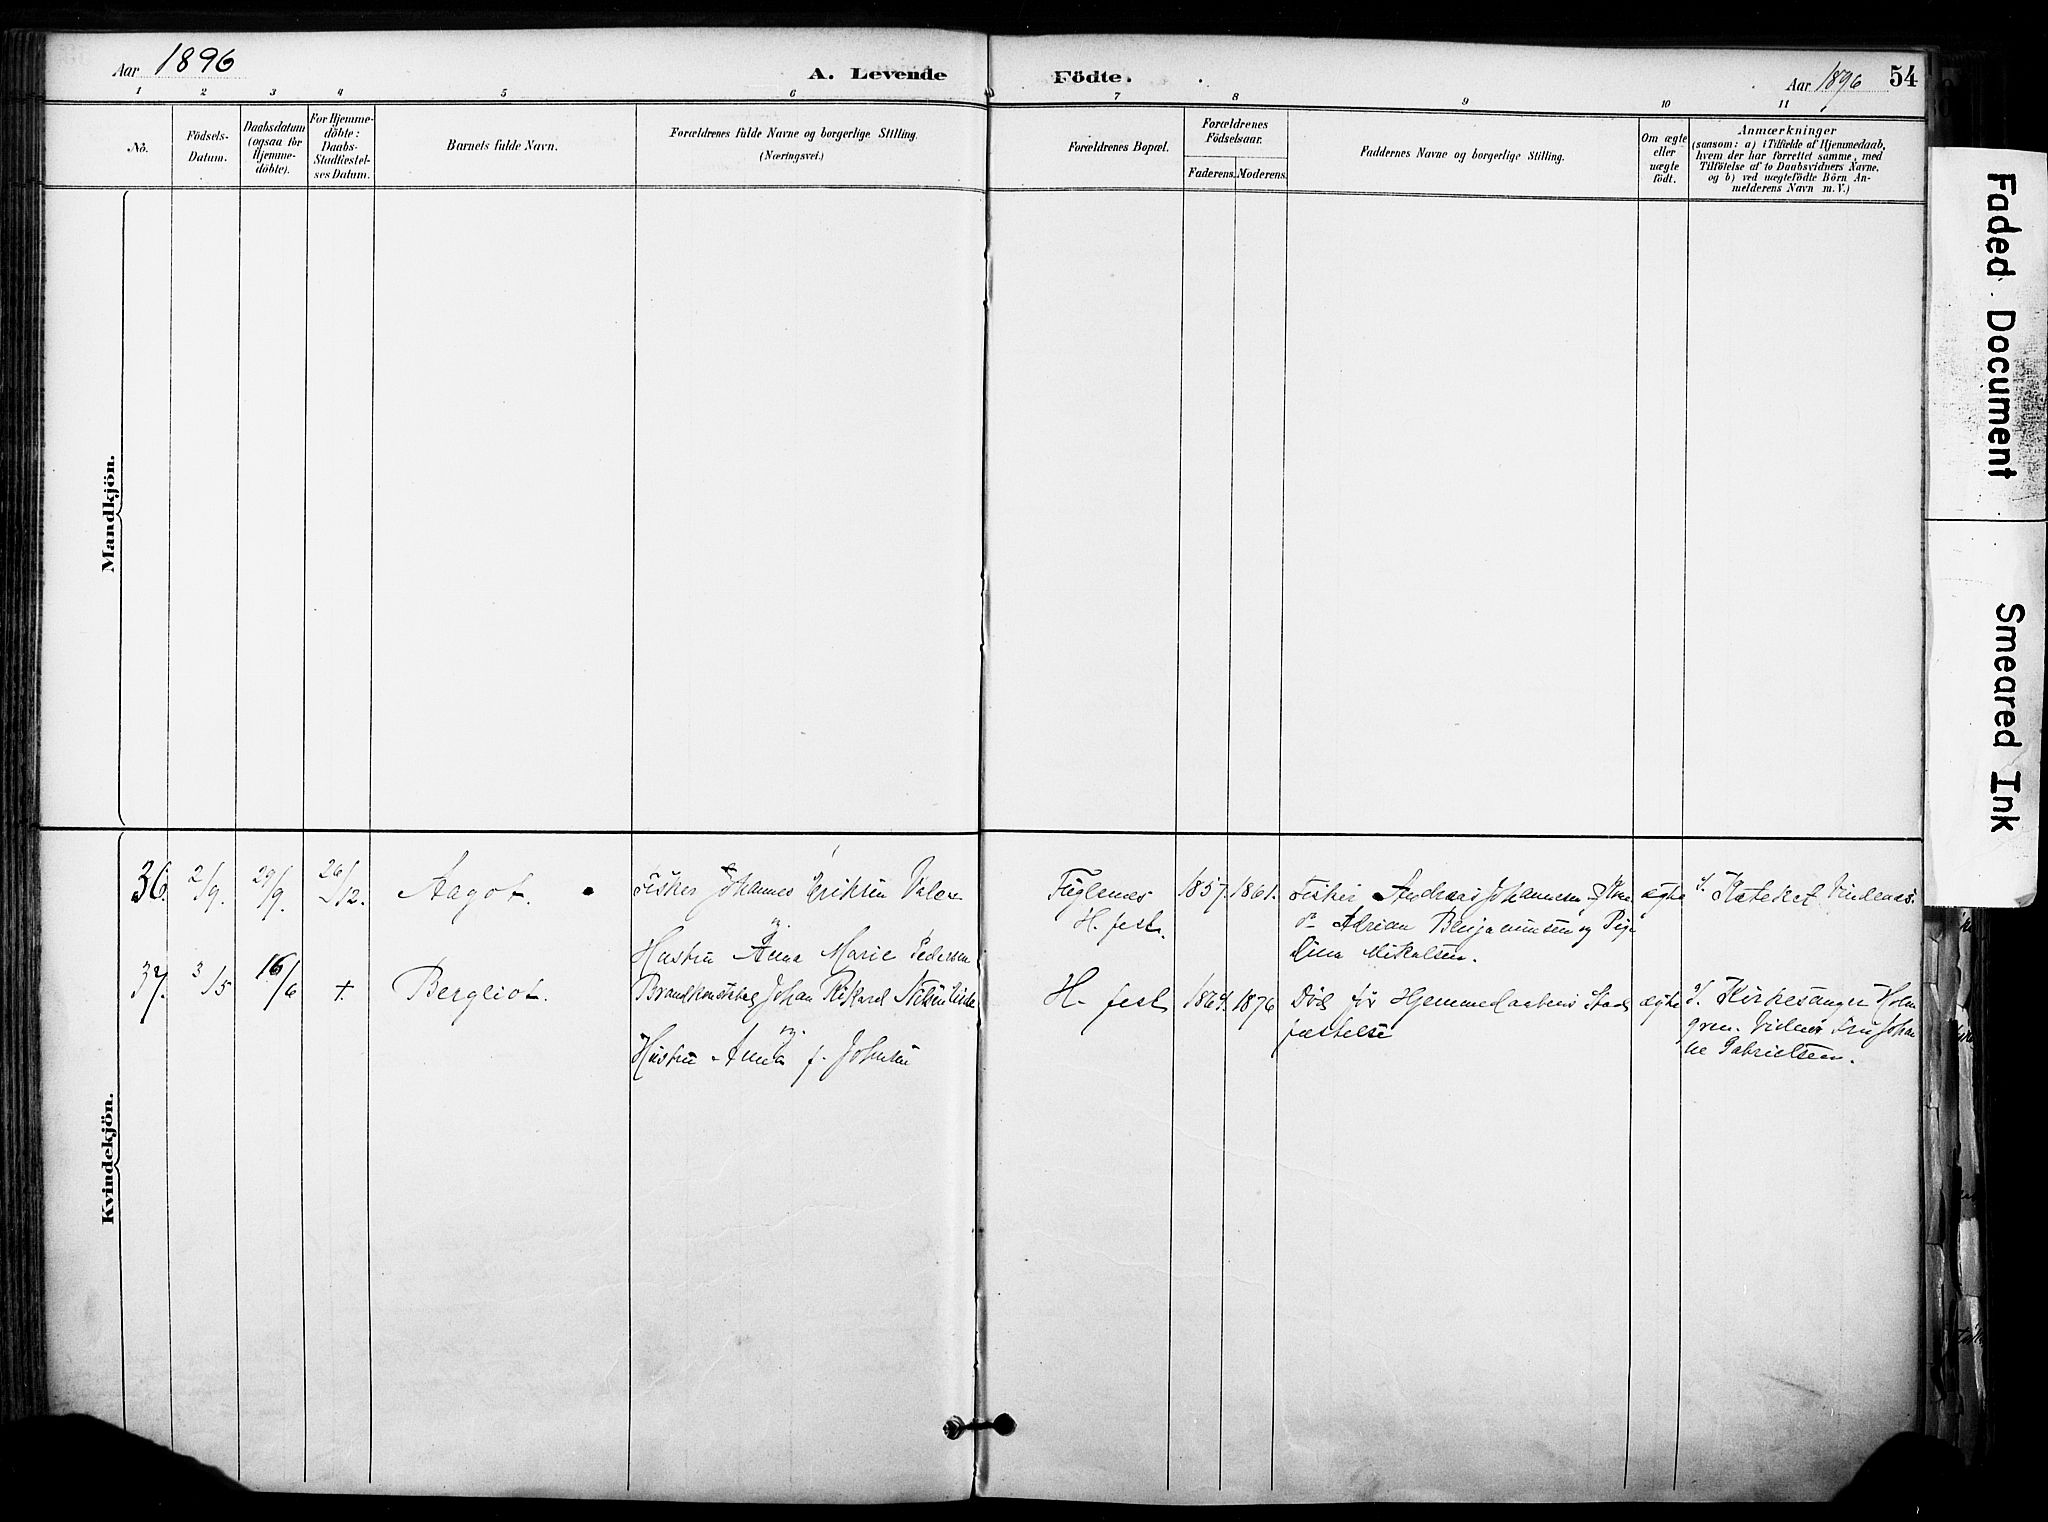 Aar 1896
A. Levende
Födte.
Aar 1896
54
1 2 3 4 5 6 7 8 9 10 11
No.
Födsels-
Datum.
Daabsdatum
(ogsaa for
Hjemme-
döbte).
For Hjemme-
döbte:
Daabs-
Stadfæstel-
ses Datum.
Barnets fulde Navn.
Forældrenes fulde Navne og borgerlige Stilling.
(Næringsvei.)
Forældrenes Bopæl.
Forældrenes
Födselsaar.
Faderens. Moderens.
Faddernes Navne og borgerlige Stilling.
Om ægte
eller
uægte
födt.
Anmærkninger
(saasom: a) i Tilfælde af Hjemmedaab,
hvem der har forrettet samme, med
Tilföielse af to Daabsvidners Navne,
og b) ved uægtefödte Börn An-
melderens Navn m. V.)
Mandkjön.
Kvindekjön.
36. 2/9. 29/9. 26/12. Aagot. Fisker Johannes Eriksen
Hustru Anna Marie Pedersen
Fuglenes
H. fest.
1857. 1861.
Fisker Andreas Johannesen
Adrian Benjaminsen og Pige
Lina Mikalsen.
ægte
Kateket Vindenes.
37. 3/5 16/6 +. Bergliot. Brandkonstabel Johan Rikard Nilsen
Hustru Anna f. Johnsen
H. fest
1869. 1876
Död før Hjemmedaabens Stad
fæstelse
ægte
Kirkesanger Holm
gren. Vidner Fru Johan
ne Gabrielsen.
Faded Document
Smeared Ink